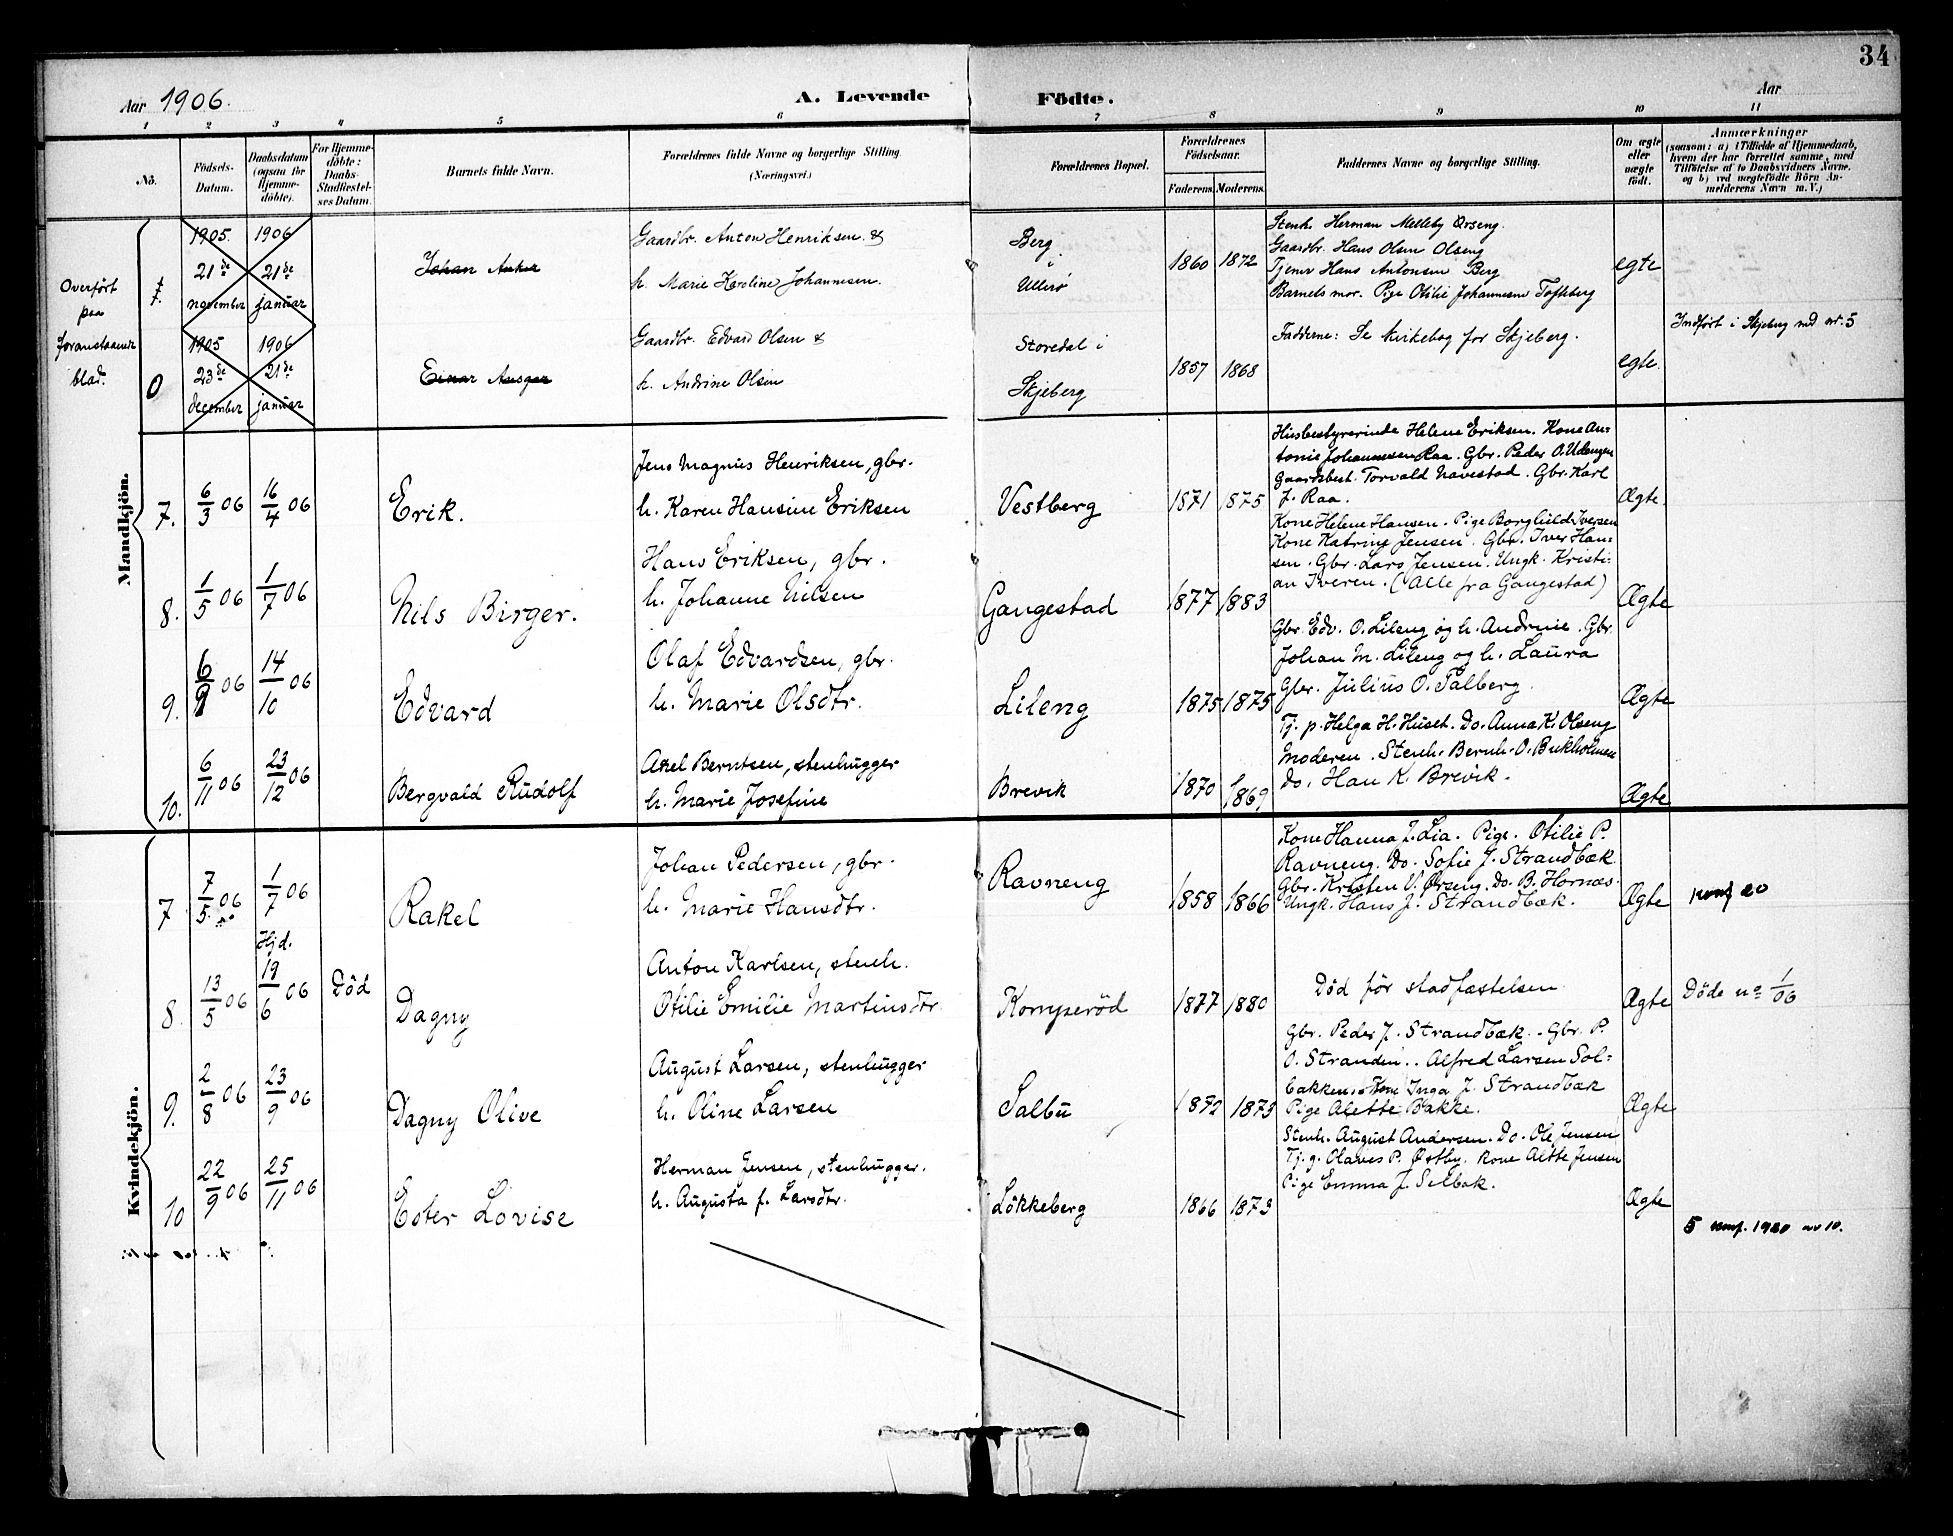 34
Aar 1906.
A. Levende
Födte.
Aar
1 2 3 4 5 6 7 8 9 10 11
No.
Födsels-
Datum.
Daabsdatum
(ogsaa for
Hjemme-
döbte).
For Hjemme-
döbte:
Daabs-
Stadfæstel-
ses Datum.
Barnets fulde Navn.
Forældrenes fulde Navne og borgerlige Stilling.
(Næringsvei.)
Forældrenes Bopæl.
Forældrenes
Födselsaar.
Faderens. Moderens.
Faddernes Navne og borgerlige Stilling.
Om ægte
eller
uægte
født.
Anmærkninger
(saasom: a) i Tilfælde af Hjemmedaab,
hvem der har forrettet samme, med
Tilföielse af to Daabsvidners Navne.
og b) ved uægtefödte Börn An-
melderens Navn m. V.)
Overført
paa
foranstaaende
blad.
1905. 1906
21de 21de
november januar
Johan Anker
Gaardbr. Anton Henriksen &
h. Marie Karoline Johannesen.
Berg
i
Ullerø
1860 1872
Stenh. Herman Melleby Ørseng.
Gaardbr. Hans Olsen Olseng
Tjener Hans Antonsen Berg
Barnets mor. Pige Otilie Johannesen Tofteberg
egte
1905 1906
23de 21de
december januar
Einar Ansgar
Gaardbr. Edvard Olsen &
h. Andrine Olsen
Storedal i
Skjeberg
1857 1868
Fadderne: Se kirkebog for Skjeberg.
egte.
Indført i Skjeberg med nr. 5
Mandkjön.
7.
6/3 06 16/4 06
Erik.
Jens Magnus Henriksen, gbr.
h. Karen Hansine Eriksen
Vestberg
1871 1875
Husbestyrerinde Helene Eriksen. Kone An-
tonie Johannesen Raa. Gbr. Peder O. Udengen
Gaardsbest. Torvald Navestad. Gbr. Karl
J. Raa.
Ægte.
8.
1/5 06 1/7 06
Nils Birger.
Hans Eriksen, gbr.
h. Johanne Nilsen
Gangestad
1877 1883
Kone Helene Hansen. Pige Borghild Iversen
Kone Katrine Jensen. Gbr. Iver Han-
sen. Gbr. Lars Jensen. Ungk. Kristi-
an Iveren. (Alle fra Gangestad)
Ægte
9.
6/9 06 14/10 06
Edvard
Olaf Edvardsen, gbr.
h. Marie Olsdtr.
Lileng
1875 1875
Gbr. Edv. O. Lileng og h. Andrine. Gbr.
Johan M. Lileng og h. Laura
Gbr. Julius O. Talberg.
Ægte
10.
6/11 06 23/12 06
Bergvald Rudolf
Axel Berntsen, stenhugger
h. Marie Josefine
Brevik
1870 1869
Tj. p. Helga H. Huset. Do. Anna K. Olseng
Moderen. Stenh. Bernh. O. Bukholmen
Do. Han K. Brevik.
Ægte
Kvindekjön.
7
7/5 06 1/7 06
Rakel
Johan Pedersen, gbr.
h. Marie Hansdtr.
Ravneng
1858 1866
Kone Hanna J. Lia. Pige. Otilie P.
Ravneng. Do. Sofie J. Strandbæk
Gbr. Kristen V. Ørseng. Do. B. Hornæs.
Ungk. Hans J. Strandbæk.
Ægte
konf 20
8.
13/5 06
Hjd.
19/6 06
Död
Dagny
Anton Karlsen, stenh.
Otilie Emilie Martinsdtr.
Kornseröd
1877 1880
Död för stadfæstelsen
Ægte
Döde no 1/06
9.
2/8 06 23/9 06
Dagny Olive
August Larsen, stenhugger
h. Oline Larsen
Salbu
1873
Gbr. Peder J. Strandbæk. Gbr. P.
O. Stranden.. Alfred Larsen Sol-
bakken. Kone Inga J. Strandbæk
Pige Alette Bakke.
Ægte
10
22/9 06 25/11 06
Ester Lovise
Herman Jensen, stenhugger.
h. Augusta f. Larsdtr.
Lökkeberg
1866 1873
Stenh. August Andersen. Do. Ole Jensen
Tj. g. Olaves P. Østby. Kone Alette Jensen
Pige Emma J. Selbak.
Ægte
5 konf. 1920 nv 10.